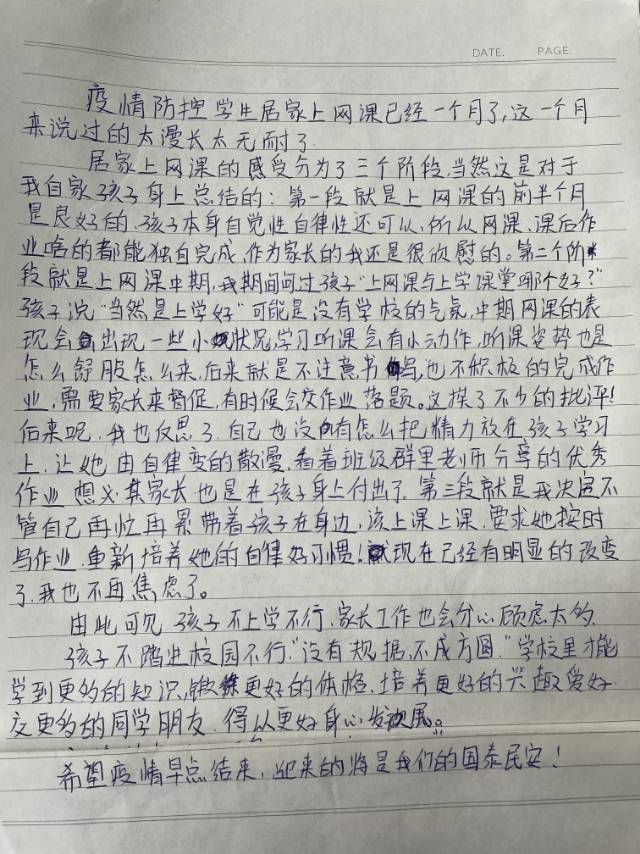 DATE. PAGE.
疫情防控学生居家上网课已经一个月了,这一个月
来说过的太漫长太无耐了
居家上网课的感受分为了三个阶段,当然这是对于
我自家孩子身上总结的:第一段就是上网课的前半个月
是良好的,孩子本身自觉性自律性还可以,所以网课、课后作
业啥的都能独自完成,作为家长的我还是很欣慰的。第二个阶
段就是上网课中期,我期间问过孩子"上网课与上学课堂哪个好?"
孩子说"当然是上学好"可能是没有学校的气氛,中期网课的表
现会出现一些小状况,学习听课会有小动作,听课姿势也是
怎么舒服怎么来,后来就是不注意书写,也不积极的完成作
业,需要家长来督促,有时候会交作业落题。这挨了不少的批评!
后来呢,我也反思了,自己也没有怎么把精力放在孩子学习
上,让她由自律变的散漫,看着班级群里老师分享的优秀
作业想必其家长也是在孩子身上付出了。第三段就是我决定不
管自己再忙再累带着孩子在身边,该上课上课,要求她按时
写作业,重新培养她的自律好习惯!现在已经有明显的改变
了,我也不再焦虑了。
由此可见孩子不上学不行,家长工作也会分心顾虑太多,
孩子不踏进校园不行,"没有规据,不成方圆."学校里才能
学到更多的知识,锻练更好的体格,培养更好的兴趣爱好
交更多的同学朋友,得以更好身心发展。
希望疫情早点结束,迎来的将是我们的国泰民安!